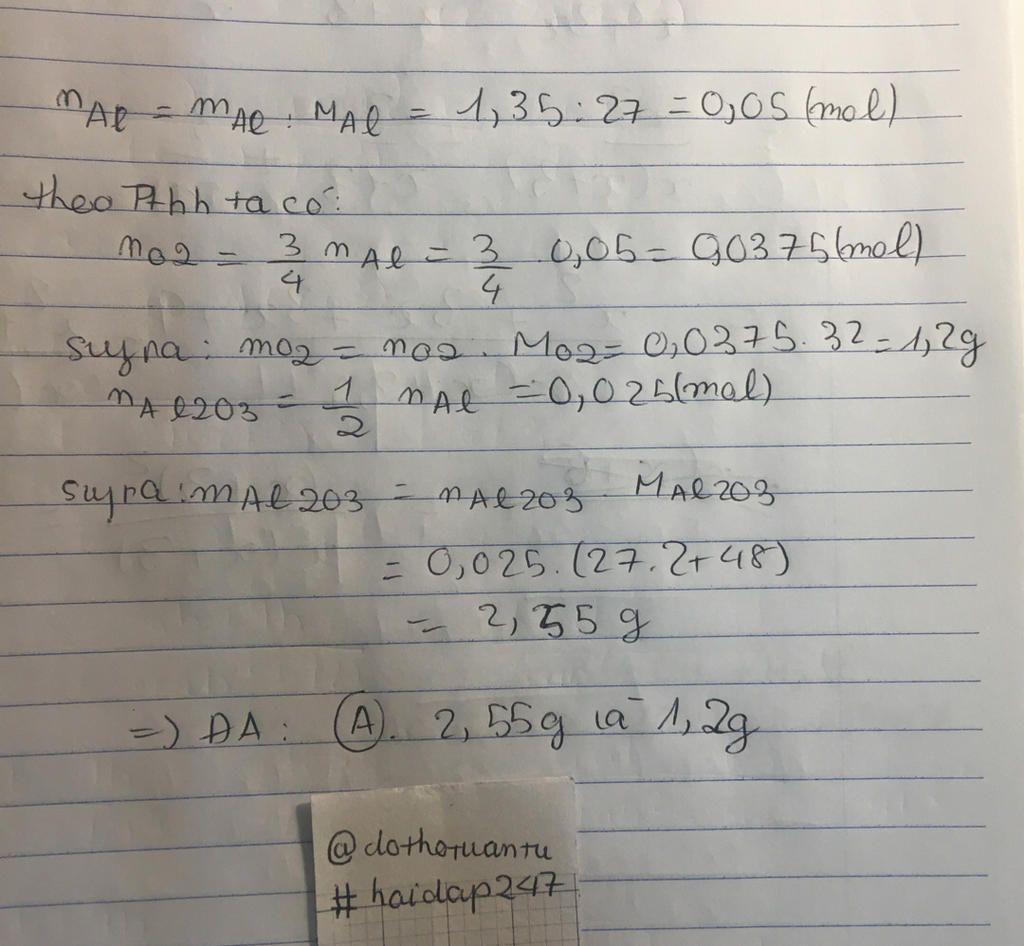 nAl = mAl : MAl = 1,35 : 27 = 0,05 (mol)
theo Pthh ta có:
nO2 = 3/4 nAl = 3/4 . 0,05 = 0,0375 (mol)
suy ra : mO2 = nO2 . MO2 = 0,0375 . 32 = 1,2g
nAl2O3 = 1/2 nAl = 0,025 (mol)
suy ra : mAl2O3 = nAl2O3 . MAl2O3
= 0,025 . (27.2+48)
= 2,55 g
=> ĐA : A. 2,55g và 1,2g
@dothotuantu
#hoidap247